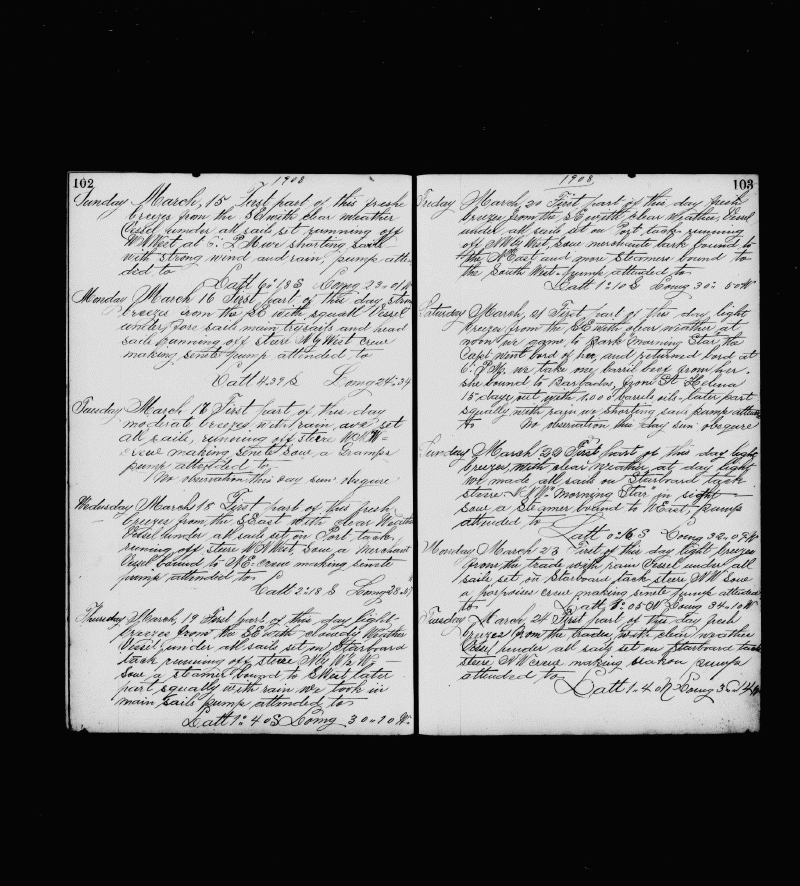 102
1908
Sunday March, 15 First part of this fresh
breezes from the SE with clear weather
Vessel under all sails set running off
WNWest at 6: P.M. we shorting sail
with strong wind and rain, pump atten-
ded to
Latt 6:18 S Long 23-01W
Monday March 16 First part of this day strong
breezes from the SE with squall Vessel
under fore sails main topsails and head
sails running off steere NyWest crew
making senete pump attended to
Latt 4.37 S Long 24:34
Tuesday March 17 First part of this day
moderate breezes with rain, set
all sails, running off steere WNW-
crew making senete Sow a Gramps
pump attended to
No observation this day sun obsgure
Wednesday March 18 First part of this fresh
breezes from the SEast with clear Weather
Vessel under all sails set on Port tack,
runing off steere WNWest, Sow a Merchant
Vessel bound to NE. Crew making senete
pump attended to
Latt 2:18 S Long 28:37
Thursday March, 19 First part of this day light-
breezes from the SE with cloudy Weather
Vessel under all sails set on Starboard
tack running off steere NyW & W,
Sow a steamer bound to SWest later
part squally with rain we took in
main sails pump attended to
Latt 1: 40S Long 30-20 W.
1908
103
Friday March, 20 First part of this day fresh
breezes from the SE with clear weather, Vessel
under all sails set on Port tack running
off NNyWest, sow merchante bark bound to
the NEast and more Steamers bound to
the South West. Pump attended to
Latt 1:10 S Long 30: 50W
Saturday March, 21 First part of this day light
breezes from the SE with clear weather at
noon we game to Bark Morning Star, the
Capt went bord of her, and returned bord at
6: P.M. we take one barril beef from her.
she bound to Barbados, from St Helena
15 days out with 1,000 barrels oil- later part
squally with rain we shorting seus pump attended
to No observation this day sun obsgure
Sunday March 22 First part of this day light
breezes, with clear weather, at day light
we made all sails on Starboard tack
steere NNW "Morning Star" in sight
Sow a Steamer bound to WEast, pump
attended to
Latt 0:16 S Long 32-09W
Monday March 23 First of this day light breezes
from the trade with rain Vessel under all
sails set on Starboard tack steere NW Sow
a porpoises crew making senete pump attended
to Latt 1:05 N Long 34-10W
Tuesday March, 24 First part of this day fresh
breezes from the trades, with clear weather
Vessel under all sails set on Starboard tack
steere NW crew making pump
attended to
Latt 1-40N Long 36-14W